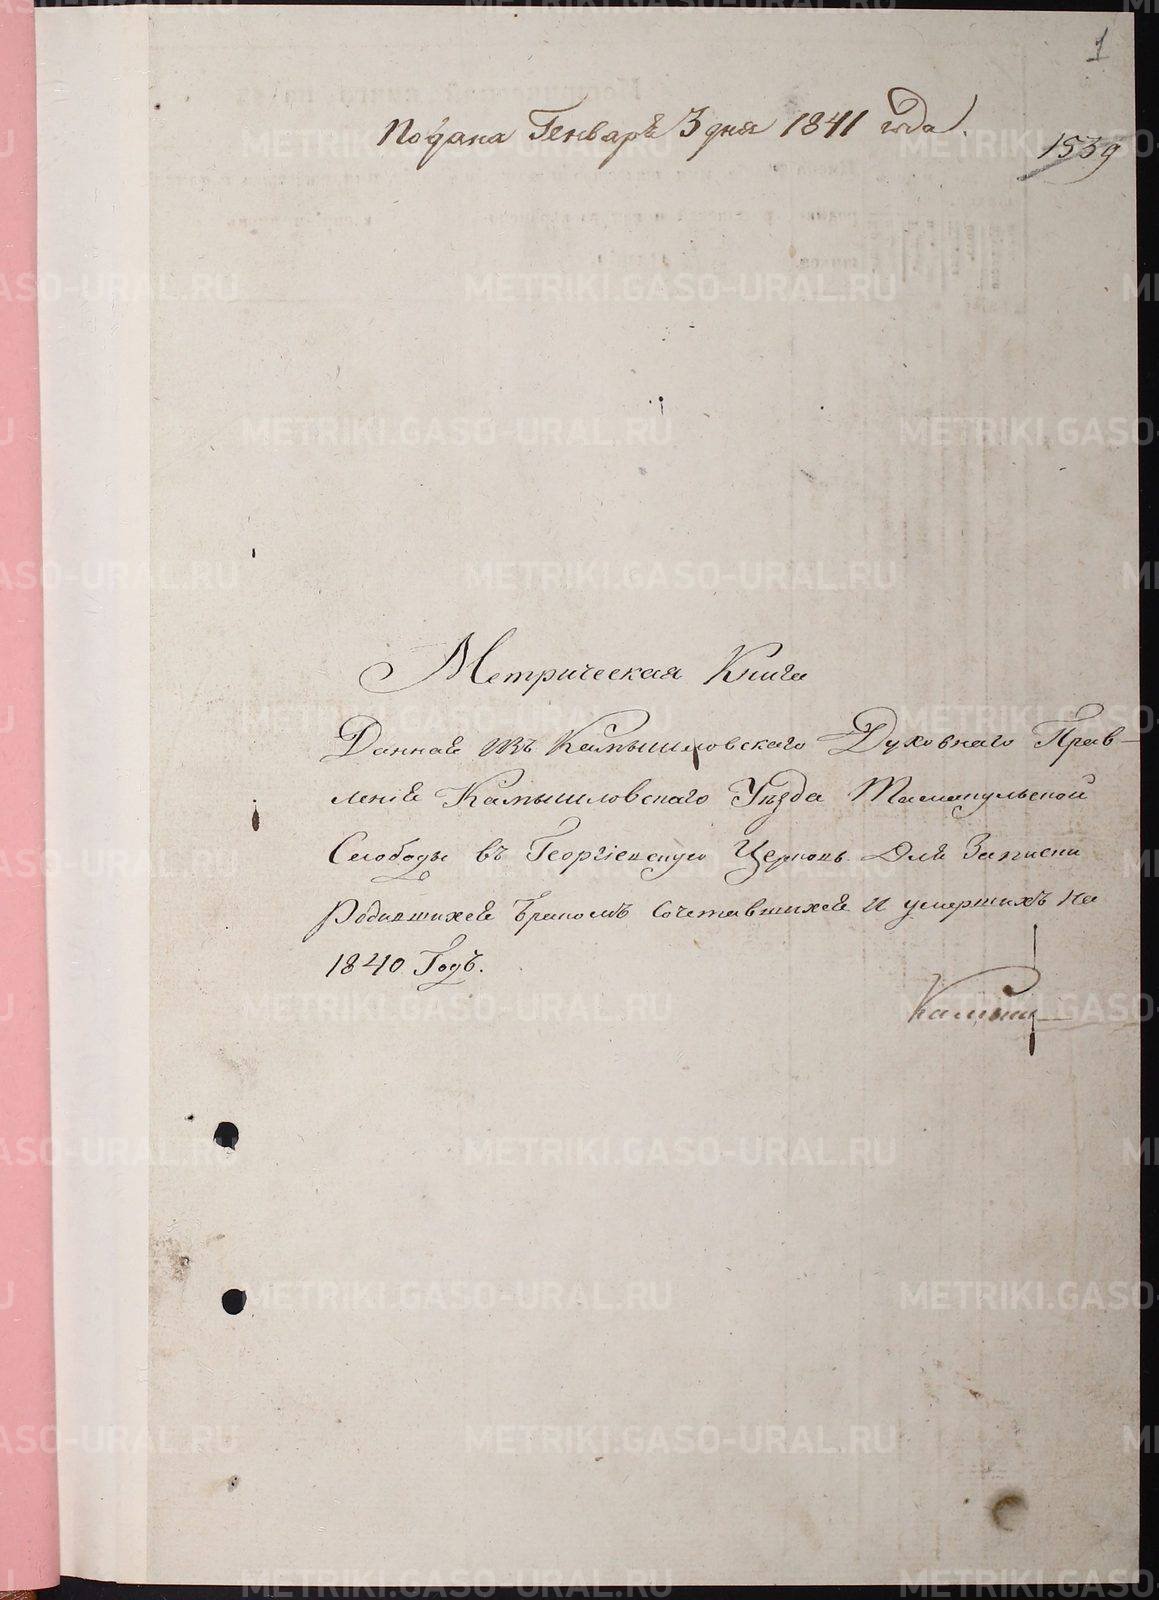 1
Подана Генваря 3 дня 1841 года.
1539
Метрическая Книга
Данная изъ Камышловскаго Духовнаго Прав-
ленія Камышловскаго Уѣзда Тамакульской
Слободы въ Георгіевскую Церковь Для Записки
Родившихся бракомъ Сочетавшихся и умершихъ на
1840 Годъ.
METRIKI.GASO-URAL.RU